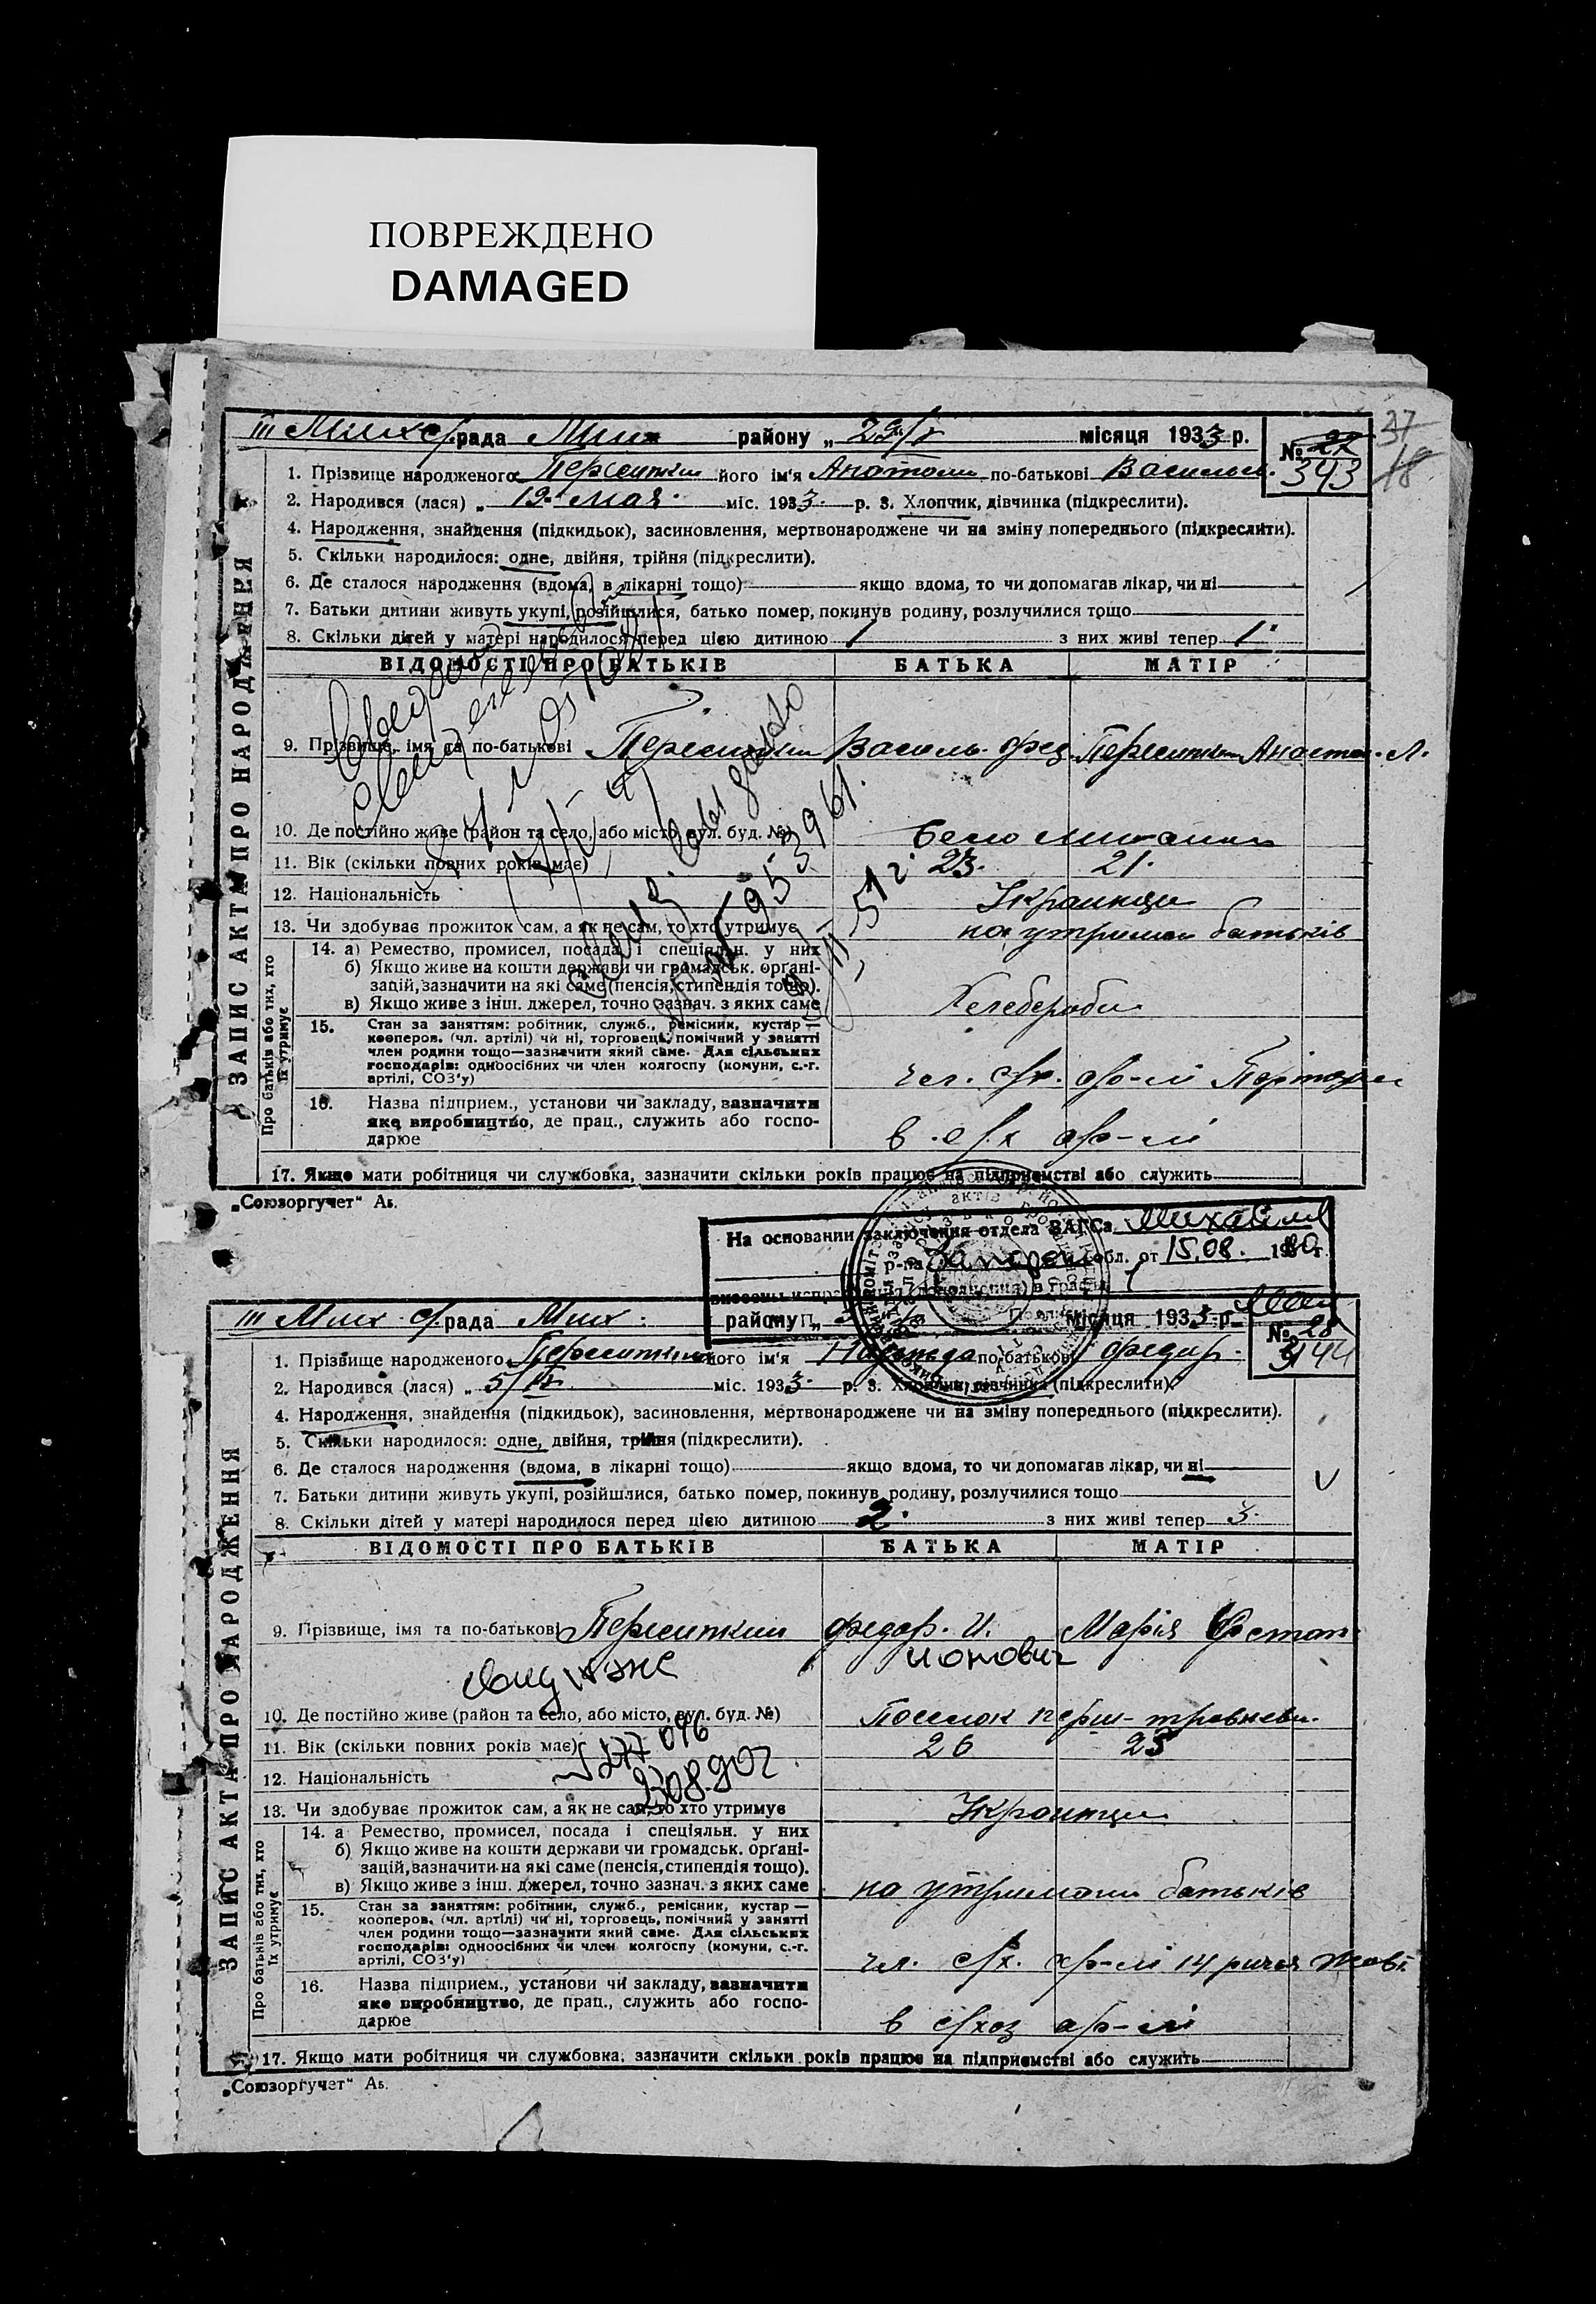 ПОВРЕЖДЕНО
DAMAGED
ЗАПИС АКТА ПРО НАРОДЖЕННЯ
III Мих с/рада Мих району „ 29/V місяця 1933 р.
№ 22
343
37
18
1. Прізвище народженого його ім'я Анатоли по-батькові Васильев.
2. Народився (лася) „ 19 мая міс. 1933 р. 3. Хлопчик, дівчинка (підкреслити).
4. Народження, знайдення (підкидьок), засиновлення, мертвонароджене чи на зміну попереднього (підкреслити).
5. Скільки народилося: одне, двійня, трійня (підкреслити).
6. Де сталося народження (вдома, в лікарні тощо) якщо вдома, то чи допомагав лікар, чи ні
7. Батьки дитини живуть укупі, розійшлися, батько помер, покинув родину, розлучилися тощо
8. Скільки дітей у матері народилося перед цією дитиною 1 з них живі тепер 1
ВІДОМОСТІ ПРО БАТЬКІВ БАТЬКА МАТІР
9. Прізвище, імя та по-батькові Василь
10. Де постійно живе (район та село, або місто, вул. буд. №) Село
11. Вік (скільки повних років має) 23. 21.
12. Національність Українци
13. Чи здобуває прожиток сам, а як не сам, то хто утримує на утриман батьків
Про батьків або тих, хто їх утримує
14. а) Ремество, промисел, посада і спеціяльн. у них
б) Якщо живе на кошти держави чи громадськ. органі-
зацій, зазначити на які саме (пенсія, стипендія тощо).
в) Якщо живе з інш. джерел, точно зазнач. з яких саме Хлебороби
15. Стан за заняттям: робітник, служб., ремісник, кустар —
кооперов. (чл. артілі) чи ні, торговець, помічний у занятті
член родини тощо—зазначити який саме. Для сільських
господарів: одноосібних чи член колгоспу (комуни, с.-г.
артілі, СОЗ'у) чл. с/х. ар-лі
16. Назва підприєм., установи чи закладу, зазначити
яке виробництво, де прац., служить або госпо-
дарює в с/х ар-лі
17. Якщо мати робітниця чи службовка, зазначити скільки років працює на підприємстві або служить
„Союзоргучет“ Аб.
На основании заключения отдела ЗАГСа
р-на обл. от 15.08. 1980 г.
ЗАПИС АКТА ПРО НАРОДЖЕННЯ
III Мих с/рада Мих району „ місяця 1933 р.
№ 28
344
1. Прізвище народженого його ім'я Надежда по-батькові Федор.
2. Народився (лася) „ 5/IV міс. 1933 р. 3. Хлопчик, дівчинка (підкреслити).
4. Народження, знайдення (підкидьок), засиновлення, мертвонароджене чи на зміну попереднього (підкреслити).
5. Скільки народилося: одне, двійня, трійня (підкреслити).
6. Де сталося народження (вдома, в лікарні тощо) якщо вдома, то чи допомагав лікар, чи ні
7. Батьки дитини живуть укупі, розійшлися, батько помер, покинув родину, розлучилися тощо
8. Скільки дітей у матері народилося перед цією дитиною 2. з них живі тепер 3.
ВІДОМОСТІ ПРО БАТЬКІВ БАТЬКА МАТІР
9. Прізвище, імя та по-батькові Федор. И. Марія
Ионович
10. Де постійно живе (район та село, або місто, вул. буд. №) Поселок перш-травневи.
11. Вік (скільки повних років має) 26 25
12. Національність
13. Чи здобуває прожиток сам, а як не сам, то хто утримує Українци
Про батьків або тих, хто їх утримує
14. а Ремество, промисел, посада і спеціяльн. у них
б) Якщо живе на кошти держави чи громадськ. органі-
зацій, зазначити на які саме (пенсія, стипендія тощо).
в) Якщо живе з інш. джерел, точно зазнач. з яких саме на утриман батьків
15. Стан за заняттям: робітник, служб., ремісник, кустар —
кооперов. (чл. артілі) чи ні, торговець, помічний у занятті
член родини тощо—зазначити який саме. Для сільських
господарів: одноосібних чи член колгоспу (комуни, с.-г.
артілі, СОЗ'у) чл. с/х. ар-лі 14 річчя Жовт
16. Назва підприєм., установи чи закладу, зазначити
яке виробництво, де прац., служить або госпо-
дарює в с/хоз ар-лі
17. Якщо мати робітниця чи службовка, зазначити скільки років працює на підприємстві або служить
„Союзоргучет“ Аб.